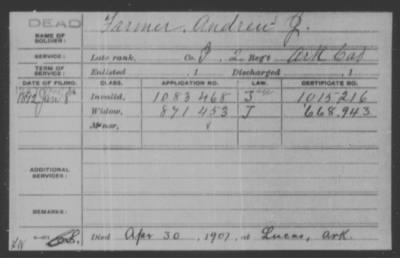 DEAD
NAME OF SOLDIER: Farmer, Andrew J.
SERVICE: Late rank, Co. I, 2 Reg't Ark Cav
TERM OF SERVICE: Enlisted , 1 Discharged , 1
DATE OF FILING. CLASS. APPLICATION NO. LAW. CERTIFICATE NO.
1892 Jan 8 Invalid, 1083468 J 1015216
Widow, 871453 J 668.943
Minor,
ADDITIONAL SERVICES:
REMARKS:
Died Apr 30, 1907, at Lucas, Ark.